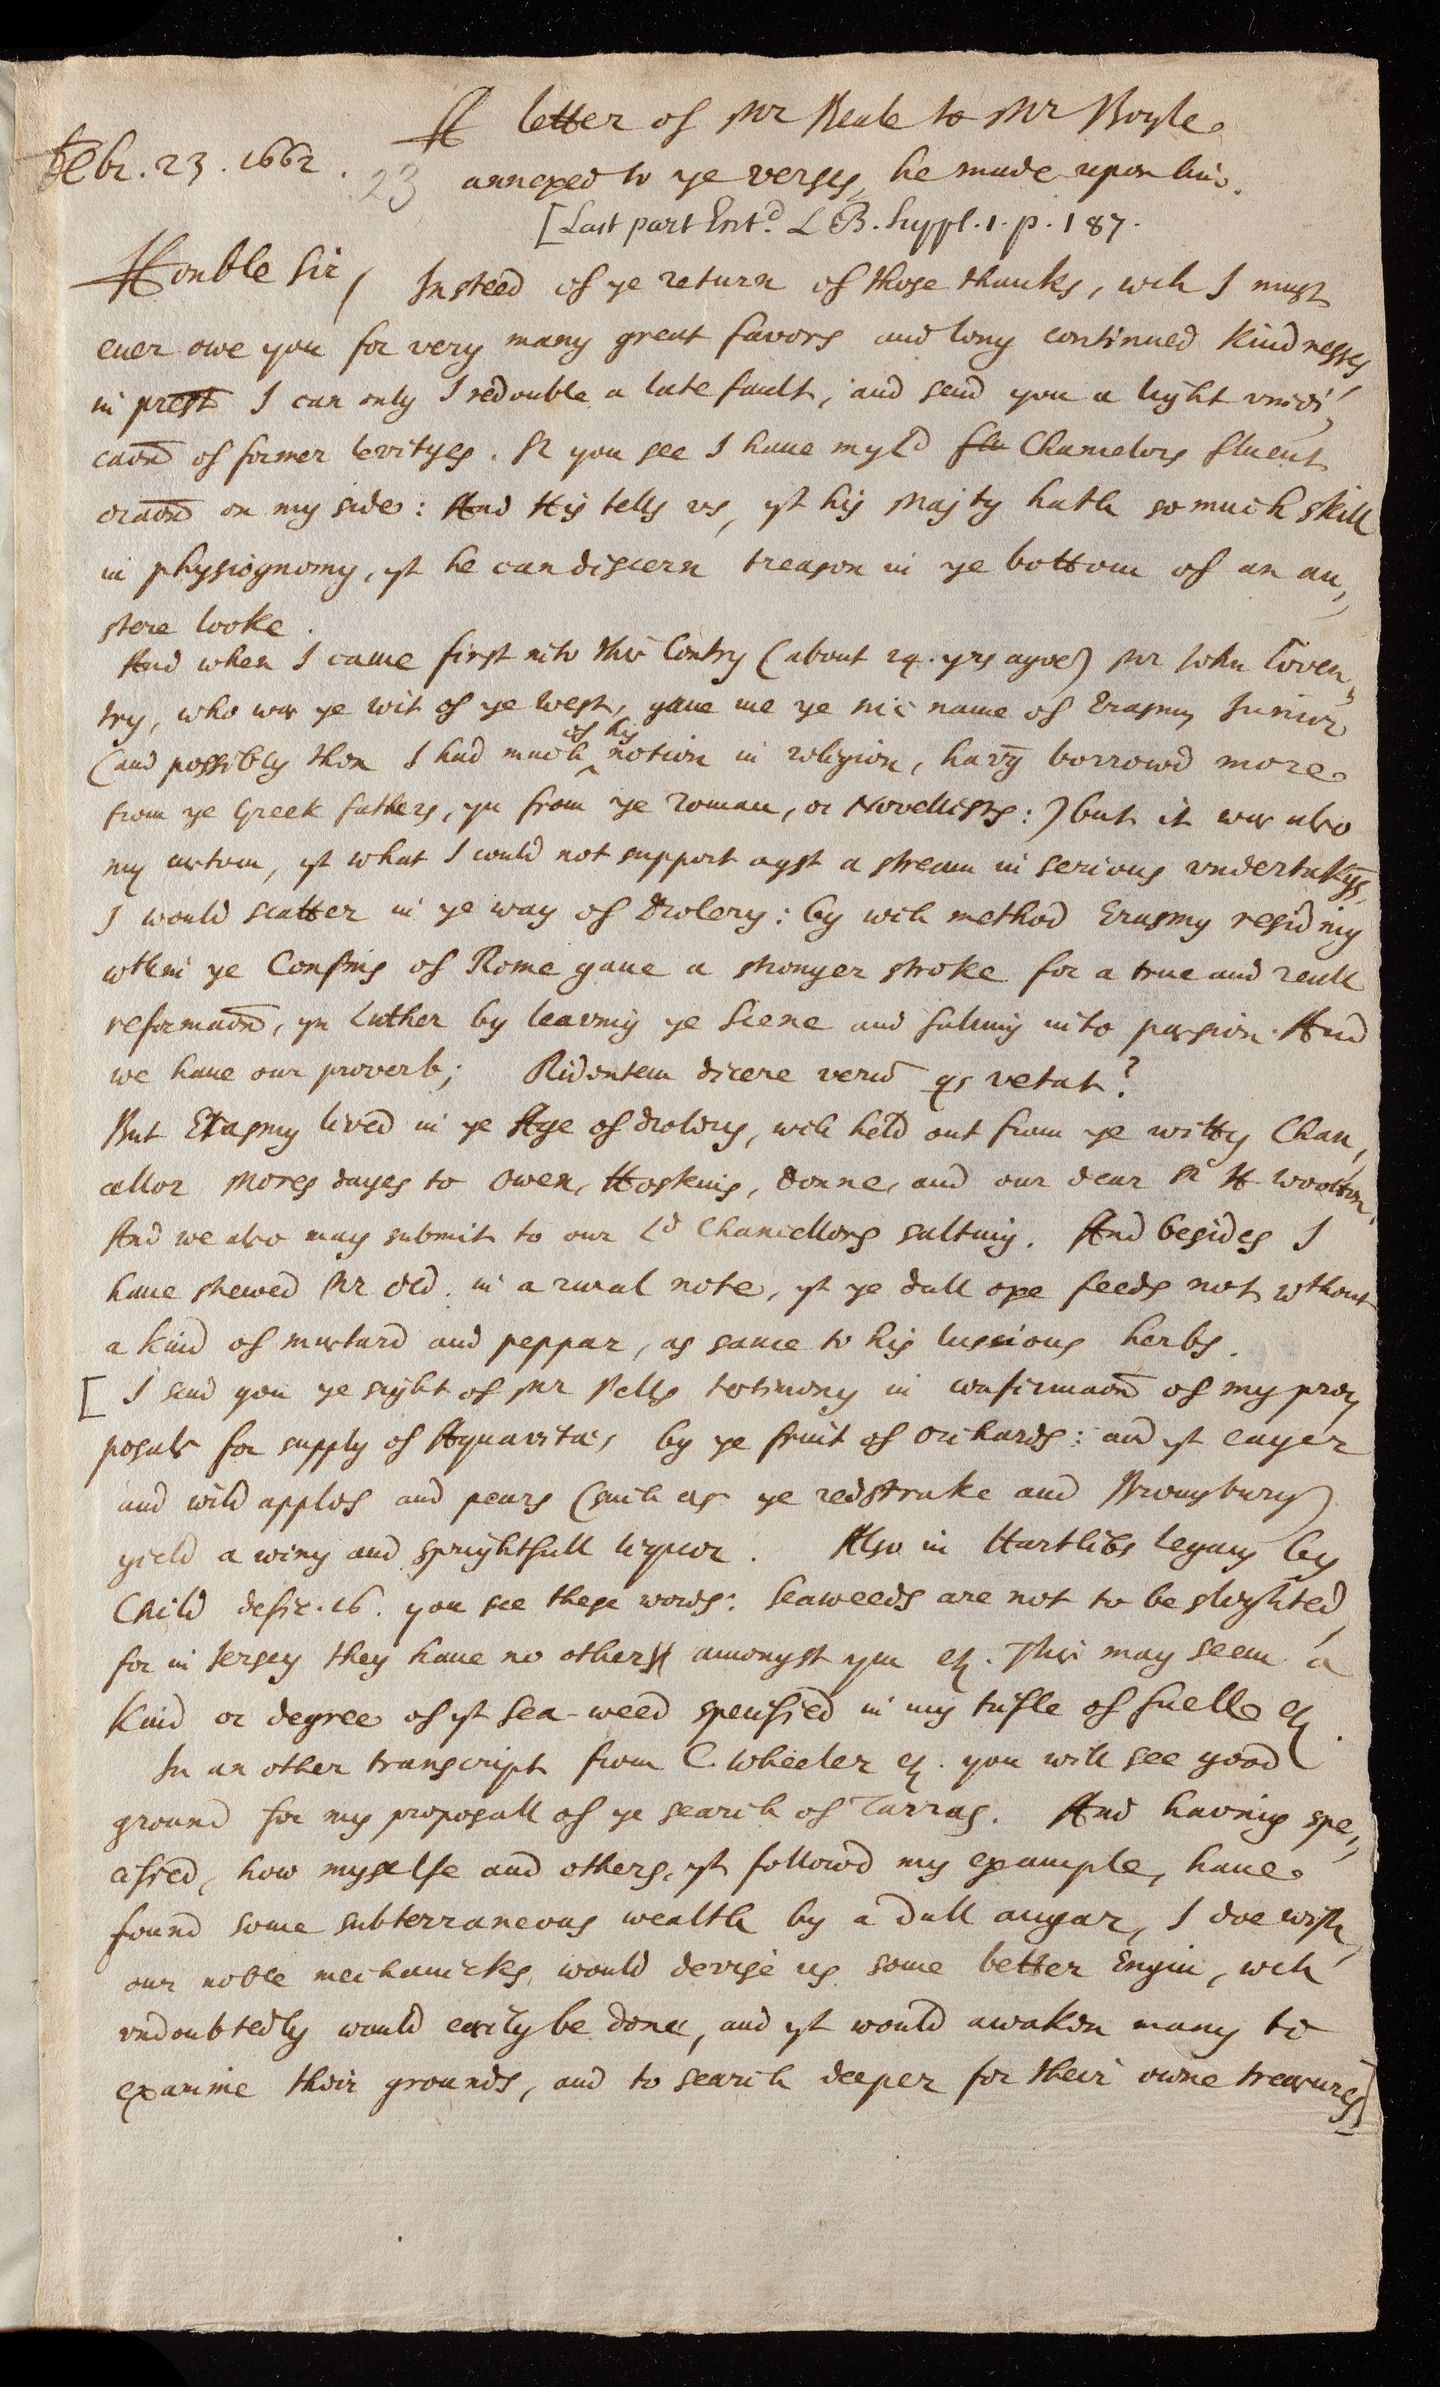 A letter of Mr Beale to Mr Boyle
Febr. 23. 1662. 23
annexed to ye verses, he made upon him.
[Last part Entd. L B. Suppl. 1. p. 187.
Honble Sir, Insteed of ye return of those thanks, wch I must
ever owe you for very many great favors and long continued kindnesses,
in prest I can only redouble a late fault, and send you a light vindi,
caon͠ of former levityes. Sr you see I haue my Ld Chancelors fluent
oraon͠ on my side: And His tells vs, yt his Majty hath so much skill
in physiognomy, yt he can discern treason in ye bottom of an au,,
stere looke.
And when I came first into this Contry (about 24. yrs agoe) Mr John Coven,,
try, who was ye wit of ye west, gaue me ye nic name of Erasmus Junior
(and possibly then I had much of his notion in religion, havg̅ borrowd more
from ye Greek fathers, yn from ye Roman, or Novellists:) but it was also
my custom, yt what I could not support agst a stream in serious vndertakg̅s,
I would scatter in ye way of drolery: by wch method Erasmus residing
wthin ye Confins of Rome gaue a stronger stroke for a true and reall
reformaon͠, yn Luther by leaving ye Scene and falling into passion. And
we haue our proverb; Ridentem dicere veru̅ qs vetat?
But Erasmus lived in ye Age of drolery, wch held out from ye witty Chan,
cellor Mores dayes to Owen, Hoskins, Donne, and our dear Sr H. Wootton,
And we also may submit to our Ld Chancellors salting. And besides I
haue shewed Mr Old. in a rural note, yt ye dull oxe feeds not wthout
a kind of mustard and peppar, as sauce to his luscious herbs.
[ I send you ye sight of Mr Pells testimony in confirmaon͠ of my pro,
posals for supply of Aquavitæ, by ye fruit of orchards: and yt eager
and wild apples and pears (such as ye redstrake and Bromsbury)
yield a winy and sprightfull liquor. Also in Hartlibs legacy by
Child defic. 16. you see these words: Seaweeds are not to be slighted,
for in Jersey they haue no other amongst ym &. This may seem a
kind or degree of yt Sea-weed specified in my trifle of fuell &.
In an other transcript from C. Wheeler &. you will see good
ground for my proposall of ye search of Tarras. And having spe,,
cified, how myselfe and others, yt followd my example, haue
found some subterraneous wealth by a dull augar, I doe wish,
our noble mechanicks would devise us some better Engin, wch
vndoubtedly would easily be done, and yt would awaken many to
examine their grounds, and to search deeper for their owne treasures]